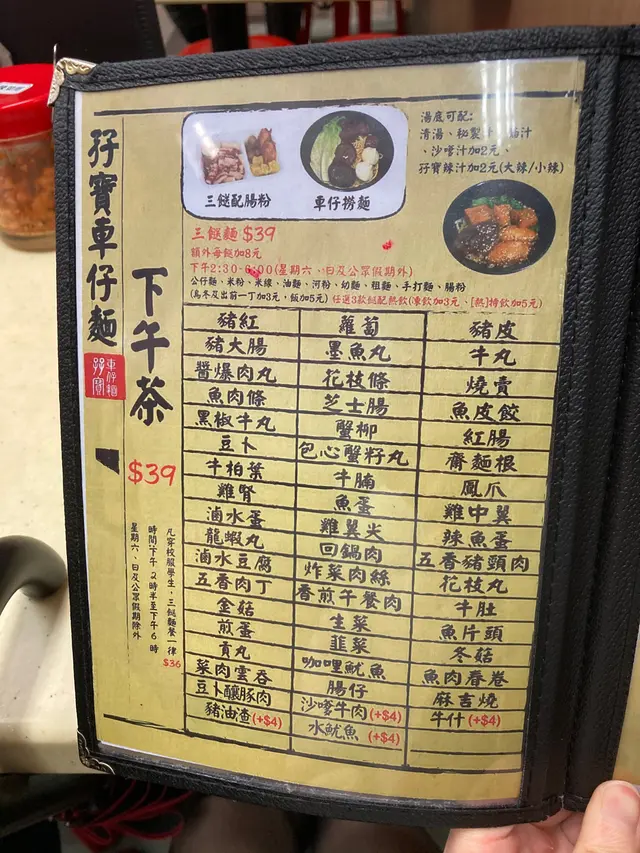 孖寶車仔麵
車仔麵
孖寶
下午茶
$39
凡穿校服學生,三餸麵餐一律
$36
時間:下午2時半至下午6時
星期六、日及公眾假期除外
三餸配腸粉
車仔撈麵
湯底可配:
清湯、秘製
、沙嗲汁加2元、
孖寶辣汁加2元(大辣/小辣)
三餸麵 $39
額外每餸加8元
下午2:30-6:00(星期六、日及公眾假期外)
公仔麵、米粉、米線、油麵、河粉、幼麵、粗麵、手打麵、腸粉
(烏冬及出前一丁加3元,飯加5元) 任選3款餸配熱飲(凍飲加3元、[熱]檸飲加5元)
豬紅 蘿蔔 豬皮
豬大腸 墨魚丸 牛丸
醬爆肉丸 花枝條 燒賣
魚肉條 芝士腸 魚皮餃
黑椒牛丸 蟹柳 紅腸
豆卜 包心蟹籽丸 齋麵根
牛柏葉 牛腩 鳳爪
雞腎 魚蛋 雞中翼
滷水蛋 雞翼尖 辣魚蛋
龍蝦丸 回鍋肉 五香豬頭肉
滷水豆腐 炸菜肉絲 花枝丸
五香肉丁 香煎午餐肉 牛肚
金菇 生菜 魚片頭
煎蛋 韮菜 冬菇
貢丸 咖哩魷魚 魚肉春卷
菜肉雲吞 腸仔 麻吉燒
豆卜釀豚肉 沙嗲牛肉(+$4) 牛什(+$4)
豬油渣(+$4) 水魷魚(+$4)